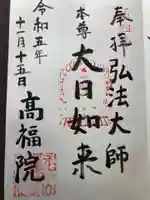 奉拝 弘法大師
本尊 大日如来
令和五年
十一月十五日
高福院